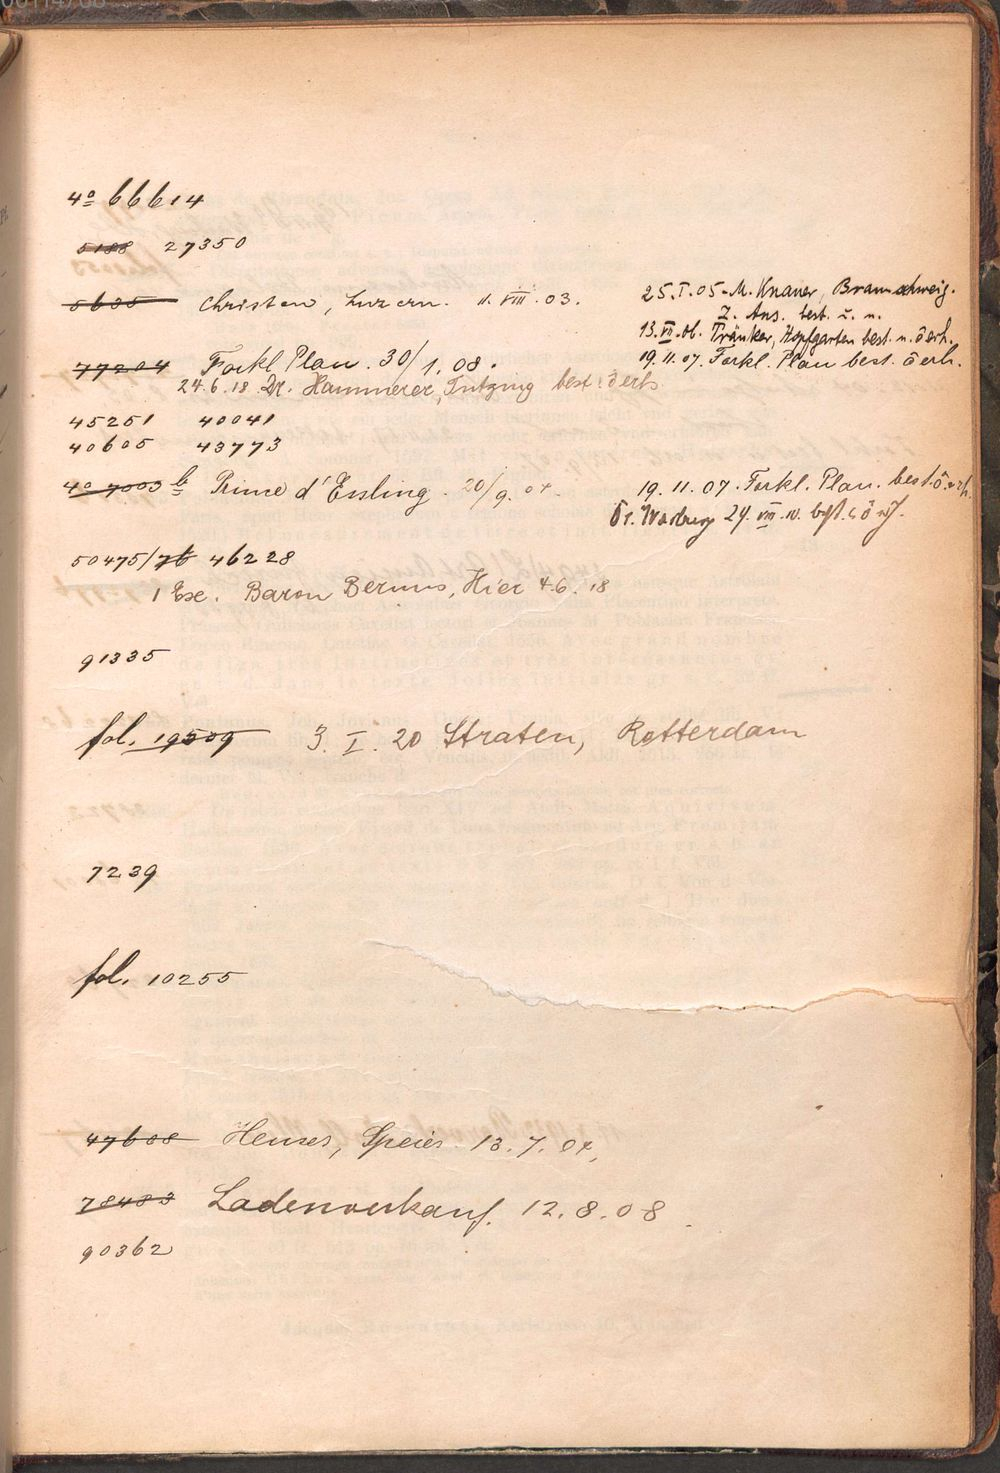 4º 66614
5188 27350
5605 Christen, Luzern. 11. VIII. 03.
25.I.05 - M. Knauer, Braunschweig.
Z. Ans. best. u. n.
13.VII.06. Tränker, Hopfgarten best. n. ö erh.
77204 Forkl Plan. 30/1.08.
19.11.07. Forkl. Plan best. ö erh.
24.6.18 Dr. Hammerer, Tutzing best. ö erh
45251 40041
40605 43773
4º 7003 b Prince d'Essling. 20/9.04.
19.11.07. Forkl. Plan. best. ö. erh.
Dr. Warburg 24. VIII.
50475/76 46228
1 Ex. Baron Bernus, Hier 4.6.18
91335
fol. 19509 3. I. 20 Straten, Rotterdam
7239
fol. 10255
47608 Heuser, Speier 13.7.04,
78483 Ladenverkauf. 12.8.08.
90362